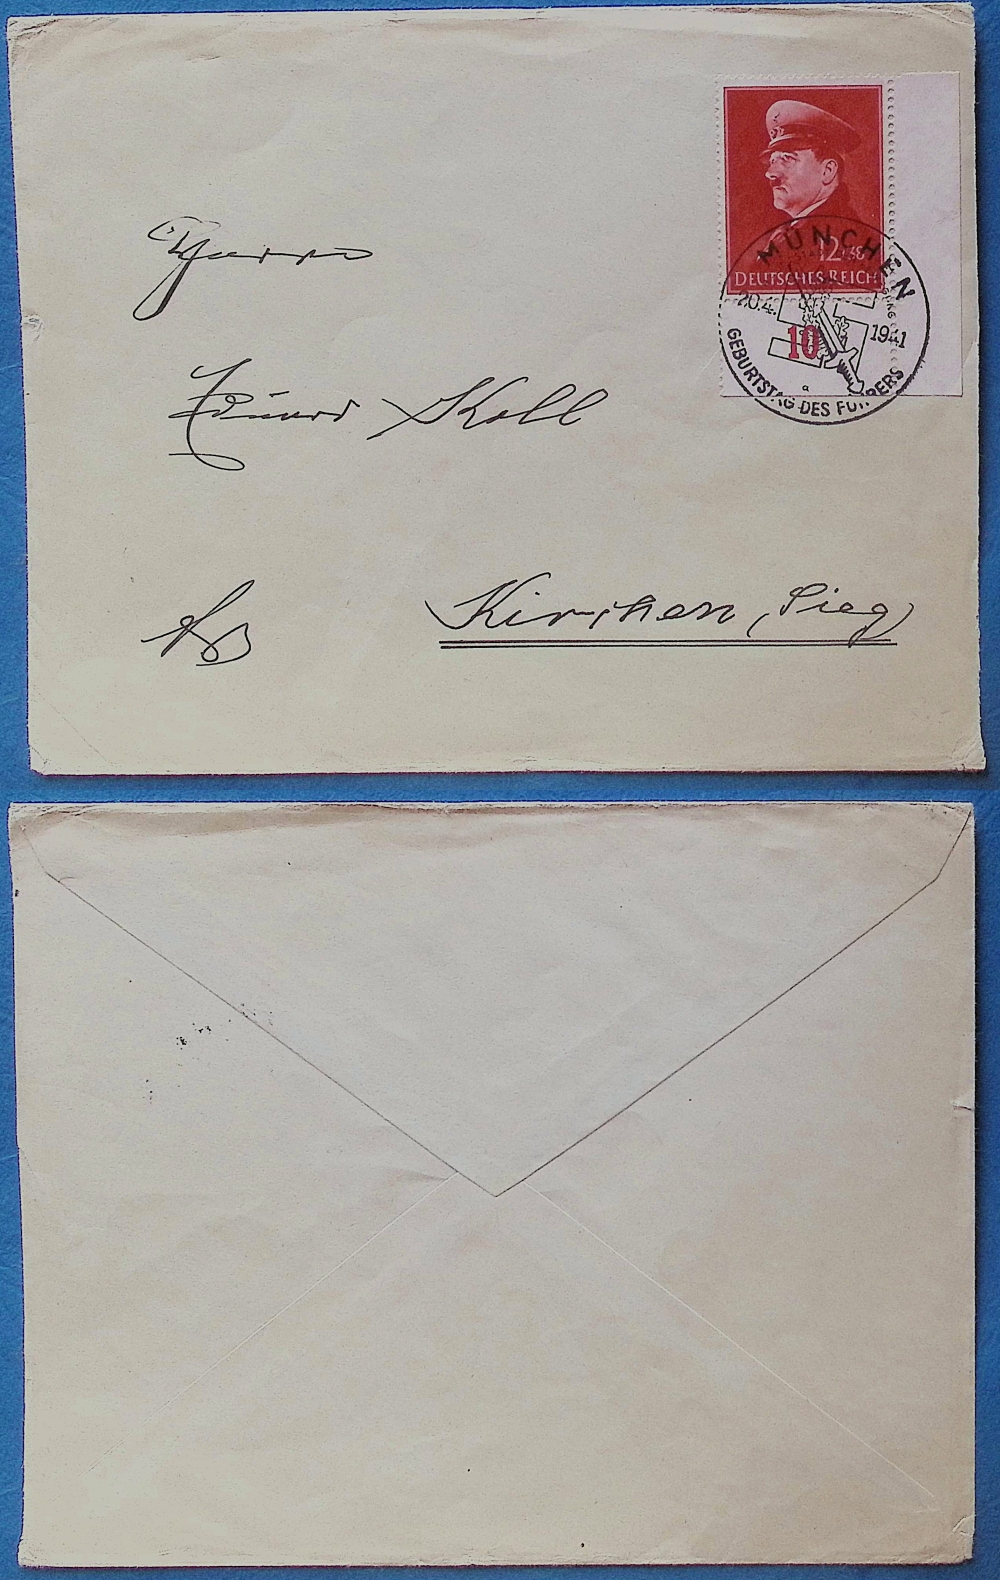 12+38
DEUTSCHES REICH
MÜNCHEN
20.4. 1941
10
a
GEBURTSTAG DES FÜHRERS
Herrn
Eduard Koll
Kirchen, (Sieg)